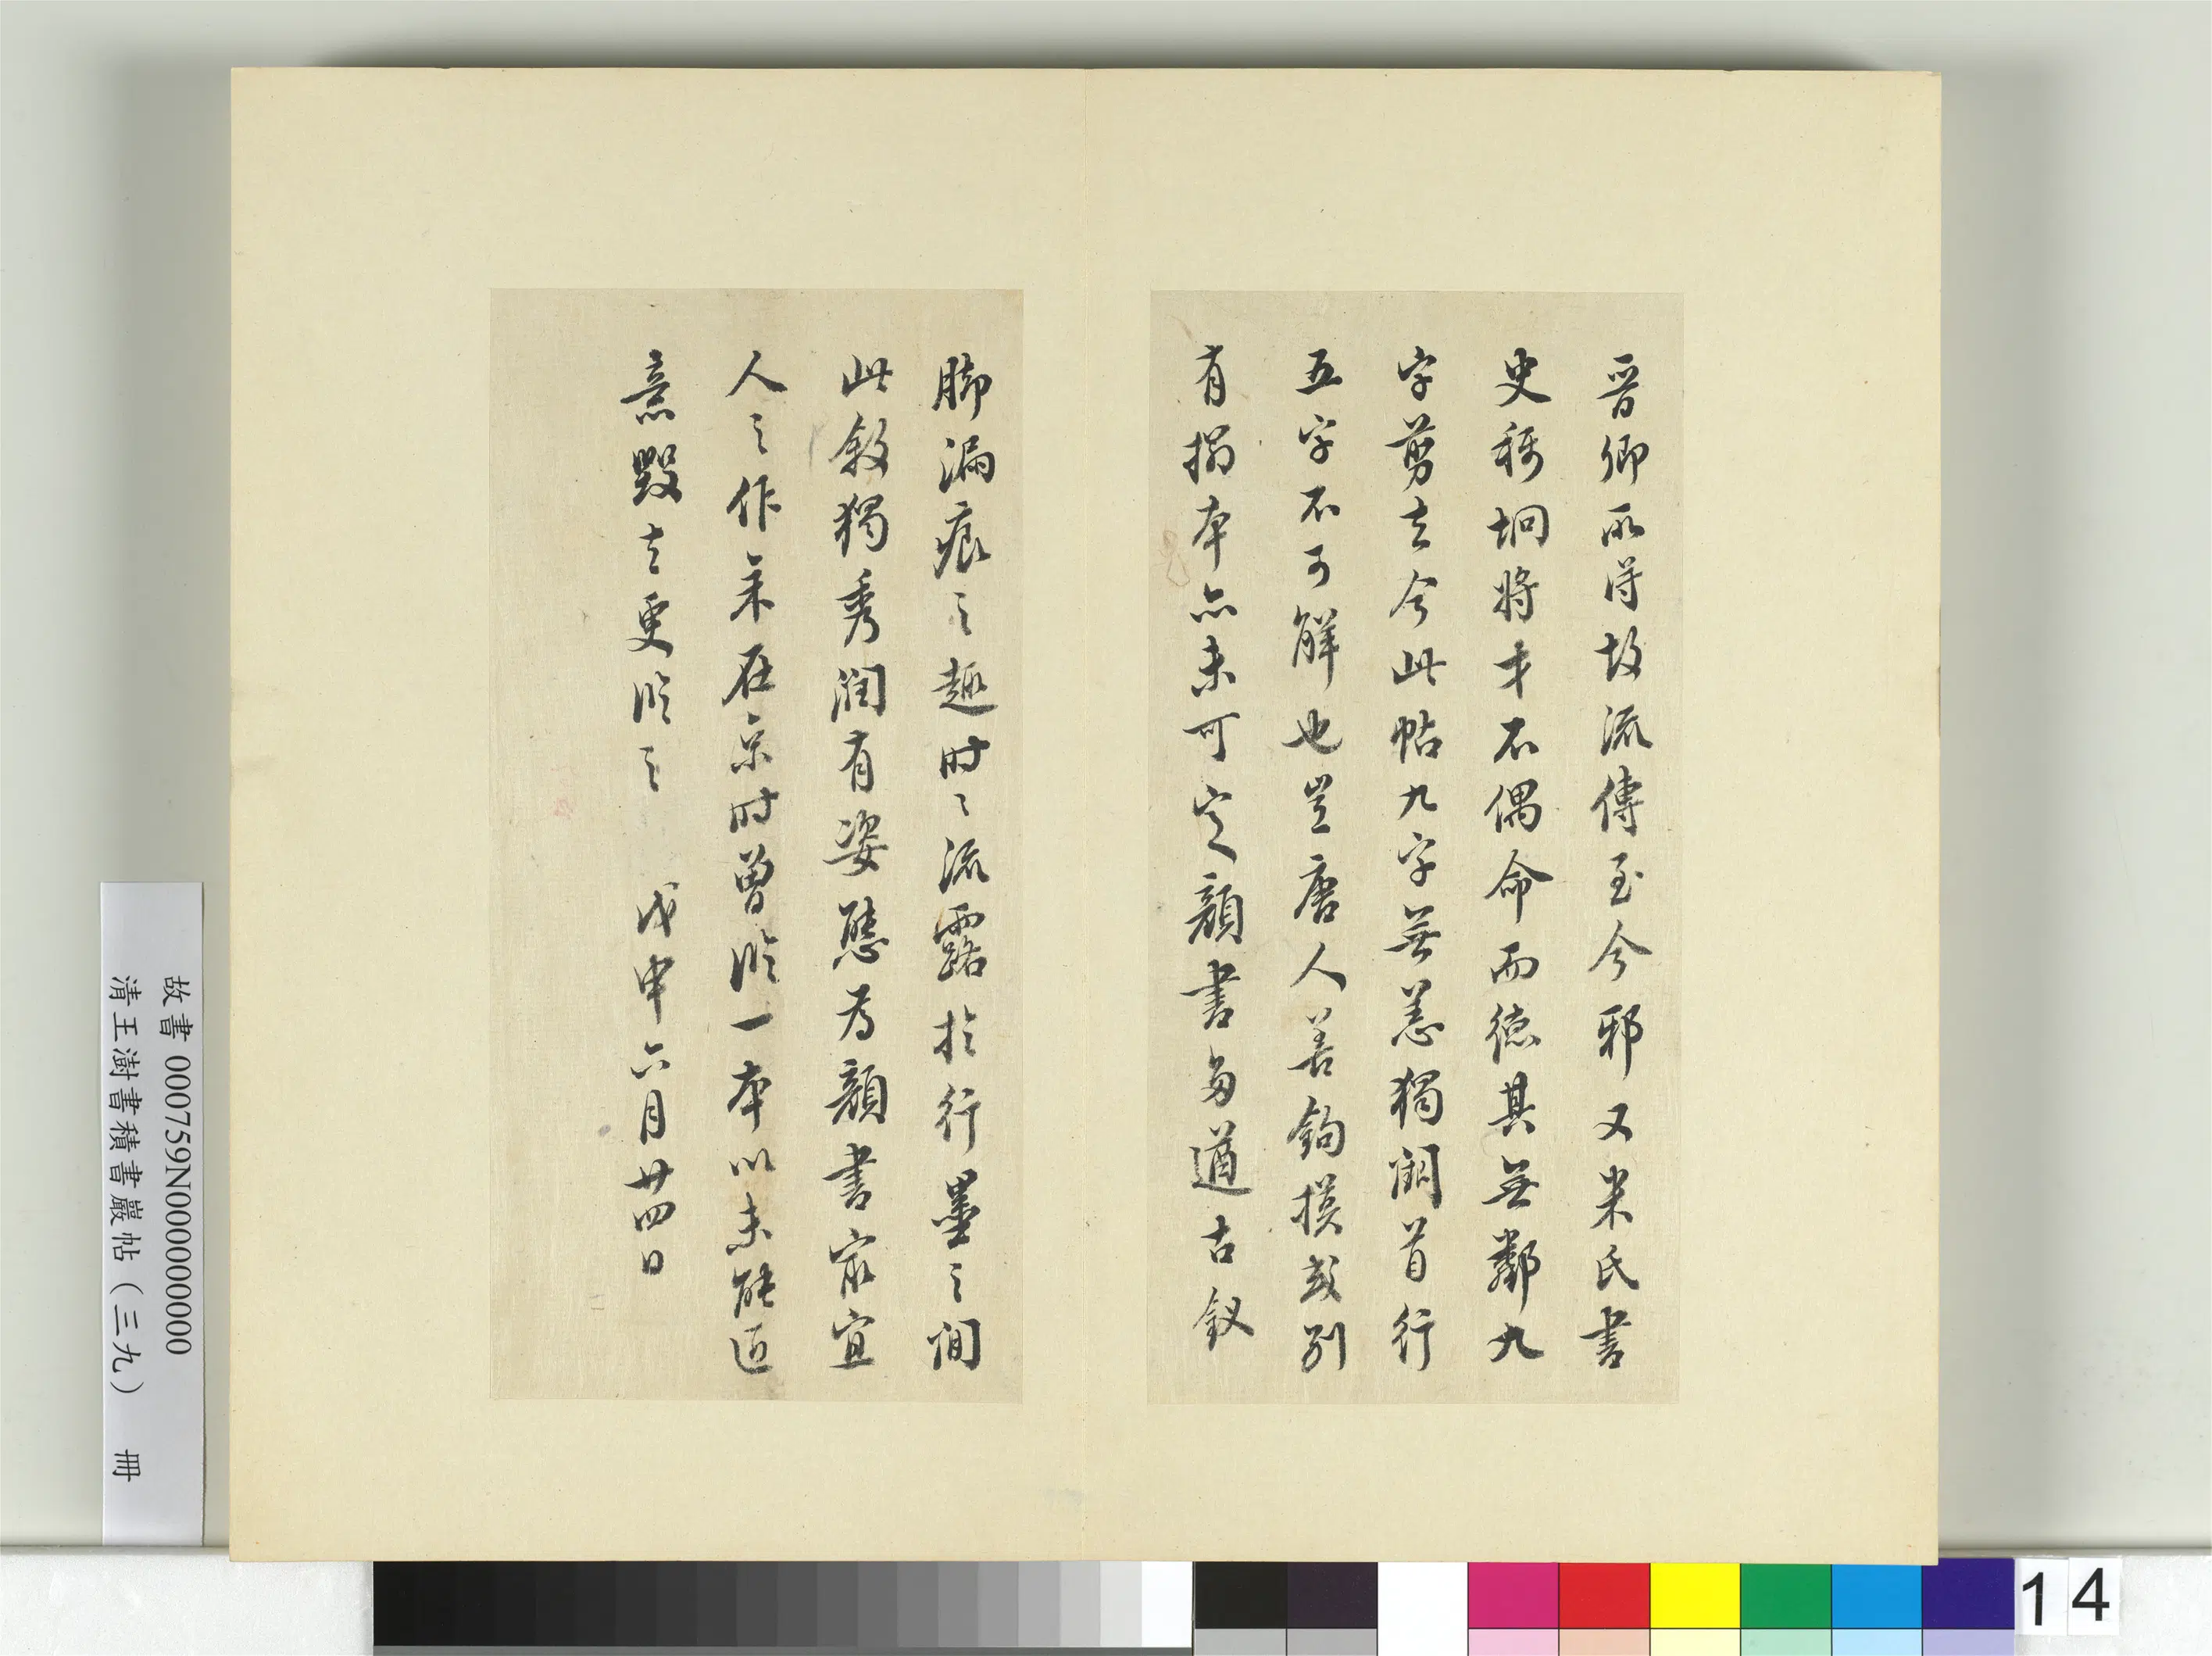 晉卿所得故流傳至今邪又米氏書
史稱坰將才不偶命而德其無鄰九
字剪去今此帖九字無恙獨闕首行
五字不可解也豈唐人善鉤摸或別
有搨本亦未可定顏書多遒古釵
腳漏痕之趣時之流露於行墨之間
此敘獨秀潤有姿態為顏書最宜
人之作耒在京時曾臨一本以未能匠
意毀去更臨之 戊申六月廿四日
故書 000759N000000000
清王澍書積書巖帖（三九） 冊
14